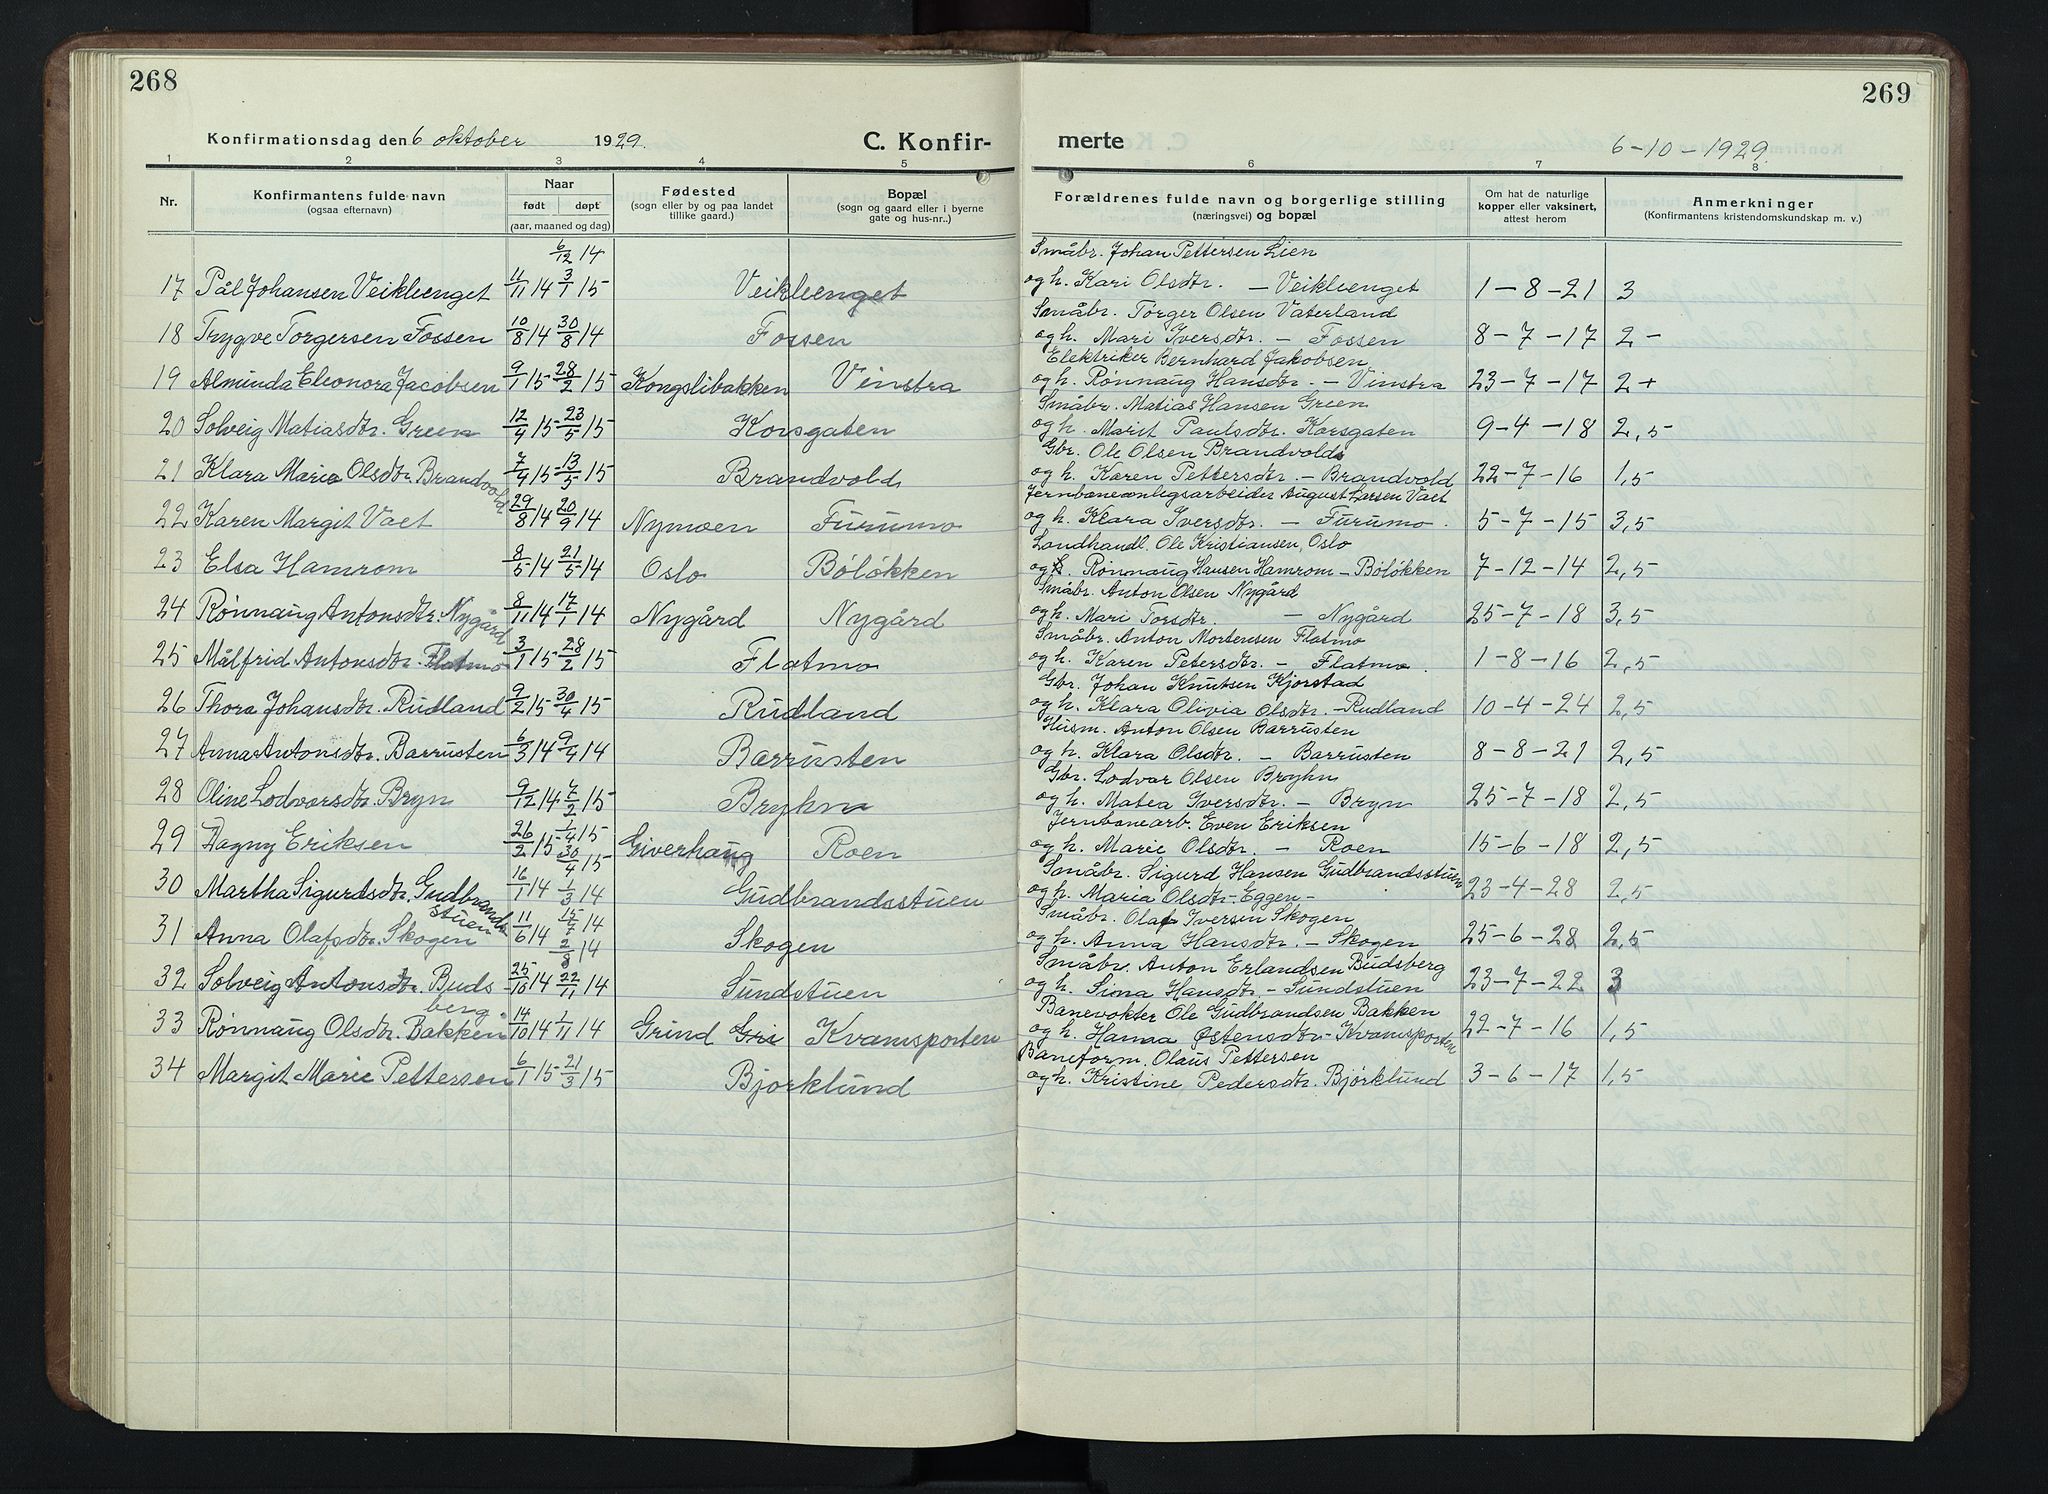 268
269
Konfirmationsdag den 6 oktober 1929.
C. Konfir-
merte
6-10-1929.
1 2 3 4 5 6 7 8
Nr.
Konfirmantens fulde navn
(ogsaa efternavn)
Naar
født døpt
(aar, maaned og dag)
Fødested
(sogn eller by og paa landet
tillike gaard.)
Bopæl
(sogn og gaard eller i byerne
gate og hus-nr..)
Forældrenes fulde navn og borgerlige stilling
(næringsvei) og bopæl
Om hat de naturlige
kopper eller vaksinert,
attest herom
Anmerkninger
(Konfirmantens kristendomskundskap m. v.)
6/12 14 Småbr. Johan Pettersen Lien
17 Pål Johansen Veikleenget 11/11 14 3/1 15 Veikleenget og h. Kari Olsdtr. – Veikleenget 1-8-21 3
Småbr. Torger Olsen Vaterland
18 Trygve Torgersen Fossen 10/8 14 30/8 14 Fossen og h. Mari Iversdtr. – Fossen 8-7-17 2-
Elektriker Bernhard Jakobsen
19 Alminda Eleonora Jacobsen 9/1 15 28/2 15 Kongslibakken Vinstra og h. Rønnaug Hansdtr. – Vinstra 23-7-17 2+
Småbr. Matias Hansen Green
20 Solveig Matiasdtr. Green 12/4 15 23/5 15 Korsgaten og h. Marit Paulsdtr. Korsgaten 9-4-18 2,5
Gbr. Ole Olsen Brandvold
21 Klara Marie Olsdtr. Brandvold 7/4 15 13/5 15 Brandvold og h. Karen Pettersdtr. – Brandvold 22-7-16 1,5
Jernbaneanlegsarbeider August Larsen Vaet
22 Karen Margit Vaet 29/8 14 20/9 14 Nymoen Furumo og h. Klara Iversdtr. – Furumo. 5-7-15 3,5
Landhandl. Ole Kristiansen, Oslo
23 Elsa Hamrom 8/5 14 21/5 14 Oslo Böløkken og Rønnaug Hansen Hamrom – Böløkken 7-12-14 2,5
Småbr. Anton Olsen Nygård
24 Rønnaug Antonsdtr. Nygård 8/11 14 17/1 14 Nygård Nygård og h. Mari Torsdtr. – Nygård 25-7-18 3,5
Småbr. Anton Mortensen Flatmo
25 Målfrid Antonsdtr. Flatmo 3/1 15 28/2 15 Flatmo og h. Karen Petersdtr. – Flatmo. 1-8-16 2,5
Gbr. Johan Knutsen Kjorstad
26 Thora Johansdtr. Rudland 9/2 15 30/4 15 Rudland og h. Klara Olivia Olsdtr. – Rudland 10-4-24 2,5
Husm. Anton Olsen Barrusten
27 Anna Antonsdtr. Barrusten 6/3 14 9/4 14 Barrusten og h. Klara Olsdtr. – Barrusten 8-8-21 2,5
Gbr. Lodvar Olsen Bryhn
28 Oline Lodvarsdtr. Bryn 9/12 14 7/2 15 Bryhn og h. Matea Iversdtr. – Bryn 25-7-18 2,5
Jernbanearb. Even Eriksen
29 Dagny Eriksen 26/2 15 1/4 15 30/4 15 Giverhaug Roen og h. Marie Olsdtr. – Roen 15-6-18 2,5
Småbr. Sigurd Hansen Gudbrandsstuen
30 Martha Sigurdsdtr. Gudbrandsstuen 16/1 14 1/3 14 Gudbrandsstuen og h. Maria Olsdtr. Eggen – 23-4-28 2,5
Småbr. Olaf Iversen Skogen
31 Anna Olafsdtr. Skogen 11/6 14 15/7 14 2/8 14 Skogen og h. Anna Hansdtr. – Skogen 25-6-28 2,5
Småbr. Anton Erlandsen Budsberg
32 Solveig Antonsdtr. Budsberg 25/10 14 22/11 14 Sundstuen og h. Siona Hansdtr. – Sundstuen 23-7-22 3
Banevokter Ole Gudbrandsen Bakken
33 Rønnaug Olsdtr. Bakken 14/10 14 1/11 14 Grind Gri Kvamsporten og h. Hanna Østensdtr. – Kvamsporten 22-7-16 1,5
Baneform. Olaus Pettersen
34 Margit Marie Pettersen 6/1 15 21/3 15 Bjorklund og h. Kristine Pedersdtr. Björklund 3-6-17 1,5